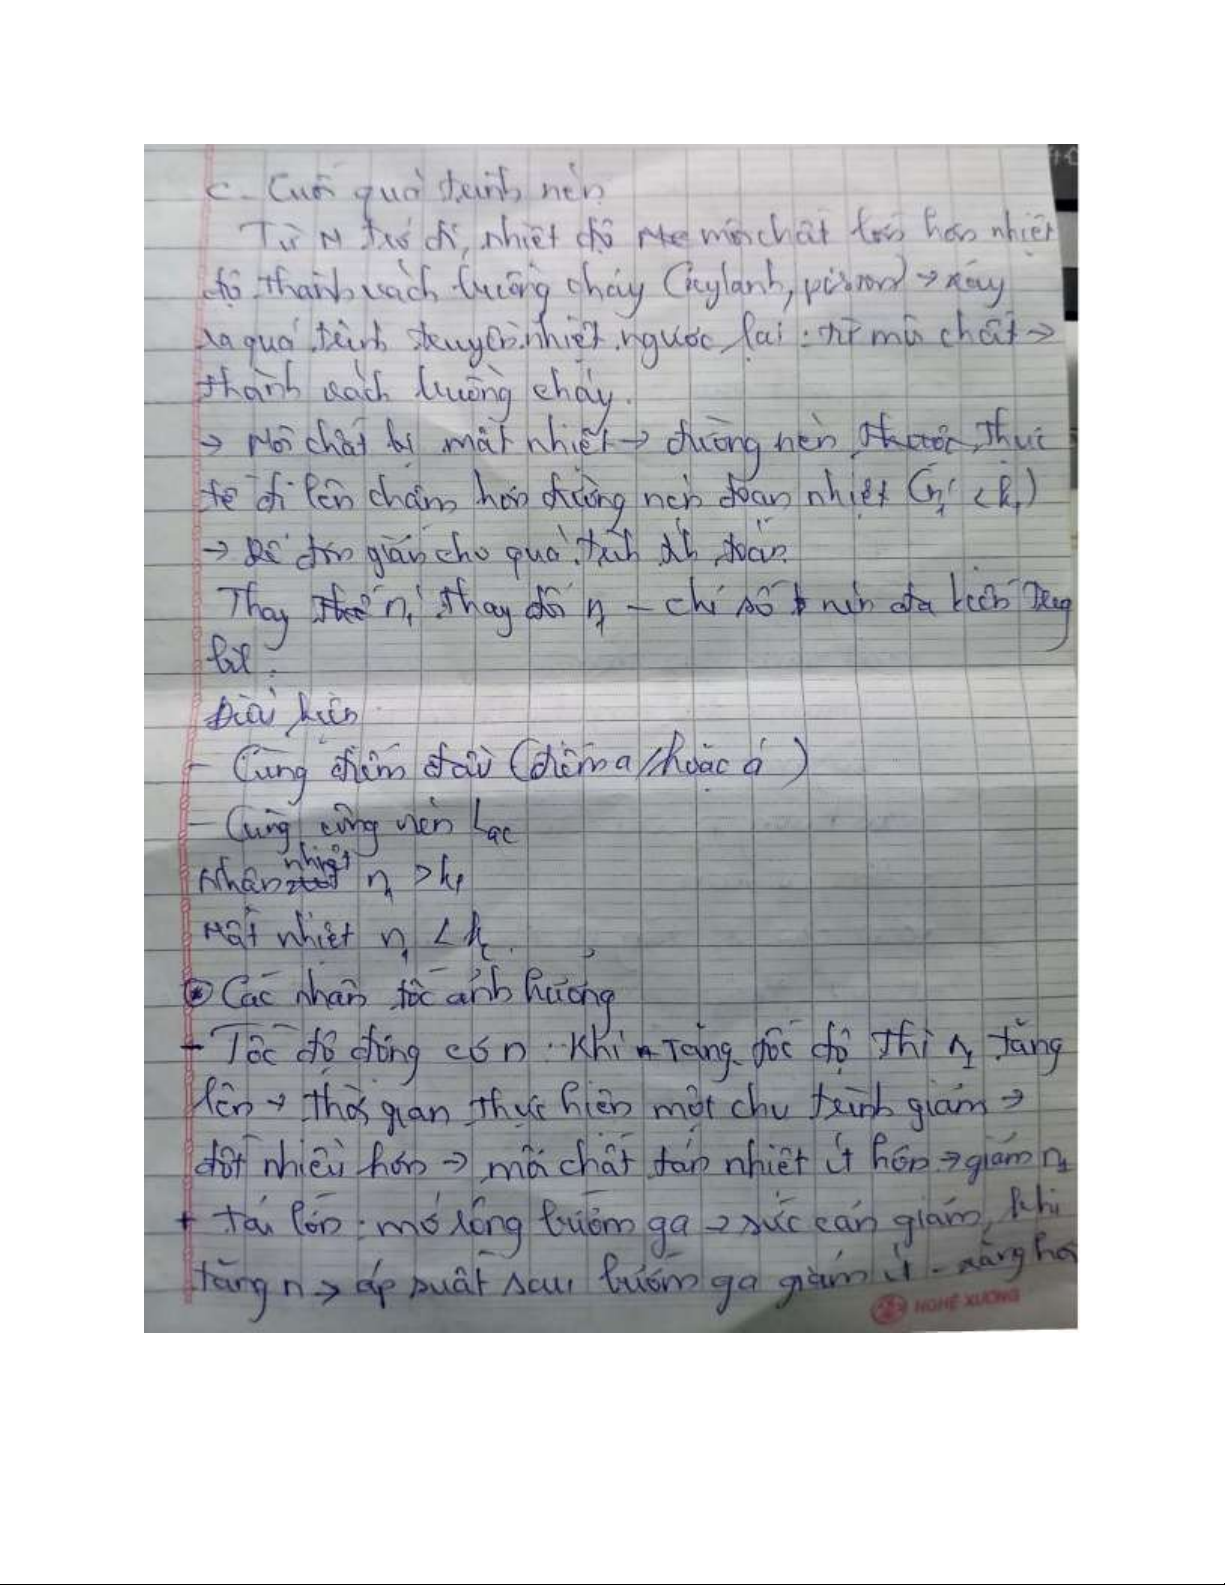 c. Cuối quá trình nén
Từ M trở đi, nhiệt độ môi chất lớn hơn nhiệt
độ thành vách buồng cháy (xylanh, piston) → xảy
ra quá trình truyền nhiệt ngược lại: từ môi chất →
thành vách buồng cháy.
→ Môi chất bị mất nhiệt → đường nén thực
tế đi lên chậm hơn đường nén đoạn nhiệt (n₁' < k₁)
→ Để đơn giản cho quá trình tính toán.
Thay n₁' thay đổi n₁ – chỉ số nén đa biến trung
bình:
Điều kiện
- Cùng điểm đầu (điểm a / hoặc á)
- Cùng công nén Lac
Nhận nhiệt n₁ > k₁
Mất nhiệt n₁ < k₁.
Các nhân tố ảnh hưởng
- Tốc độ động cơ n: Khi tăng tốc độ thì n₁ tăng
lên → thời gian thực hiện một chu trình giảm →
đốt nhiều hơn → môi chất tản nhiệt ít hơn → giảm n₁
+ tải lớn: mở rộng bướm ga → sức cản giảm, khi
tăng n → áp suất sau bướm ga giảm ít - năng hơ
NGHỆ XƯƠNG